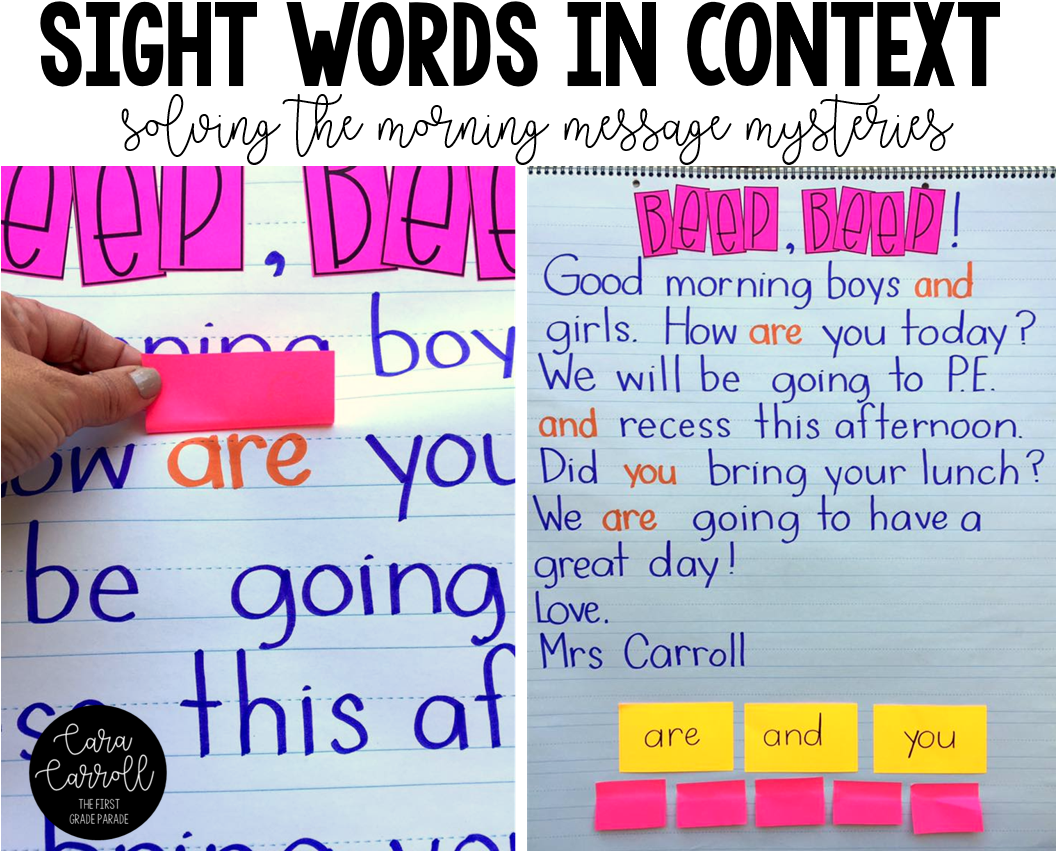 SIGHT WORDS IN CONTEXT
solving the morning message mysteries
eep, Bee
ning boy
ow are you
be going
so this af
bring you
Cara
Carroll
THE FIRST
GRADE PARADE
BEEP, BEEP!
Good morning boys and
girls. How are you today?
We will be going to P.E.
and recess this afternoon.
Did you bring your lunch?
We are going to have a
great day!
Love.
Mrs Carroll
are and you